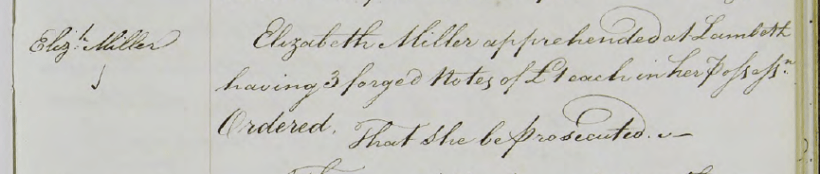 Eliz.th Miller
Elizabeth Miller apprehended at Lambeth
having 3 forged Notes of £1 each in her Possess.n
Ordered. That she be prosecuted.